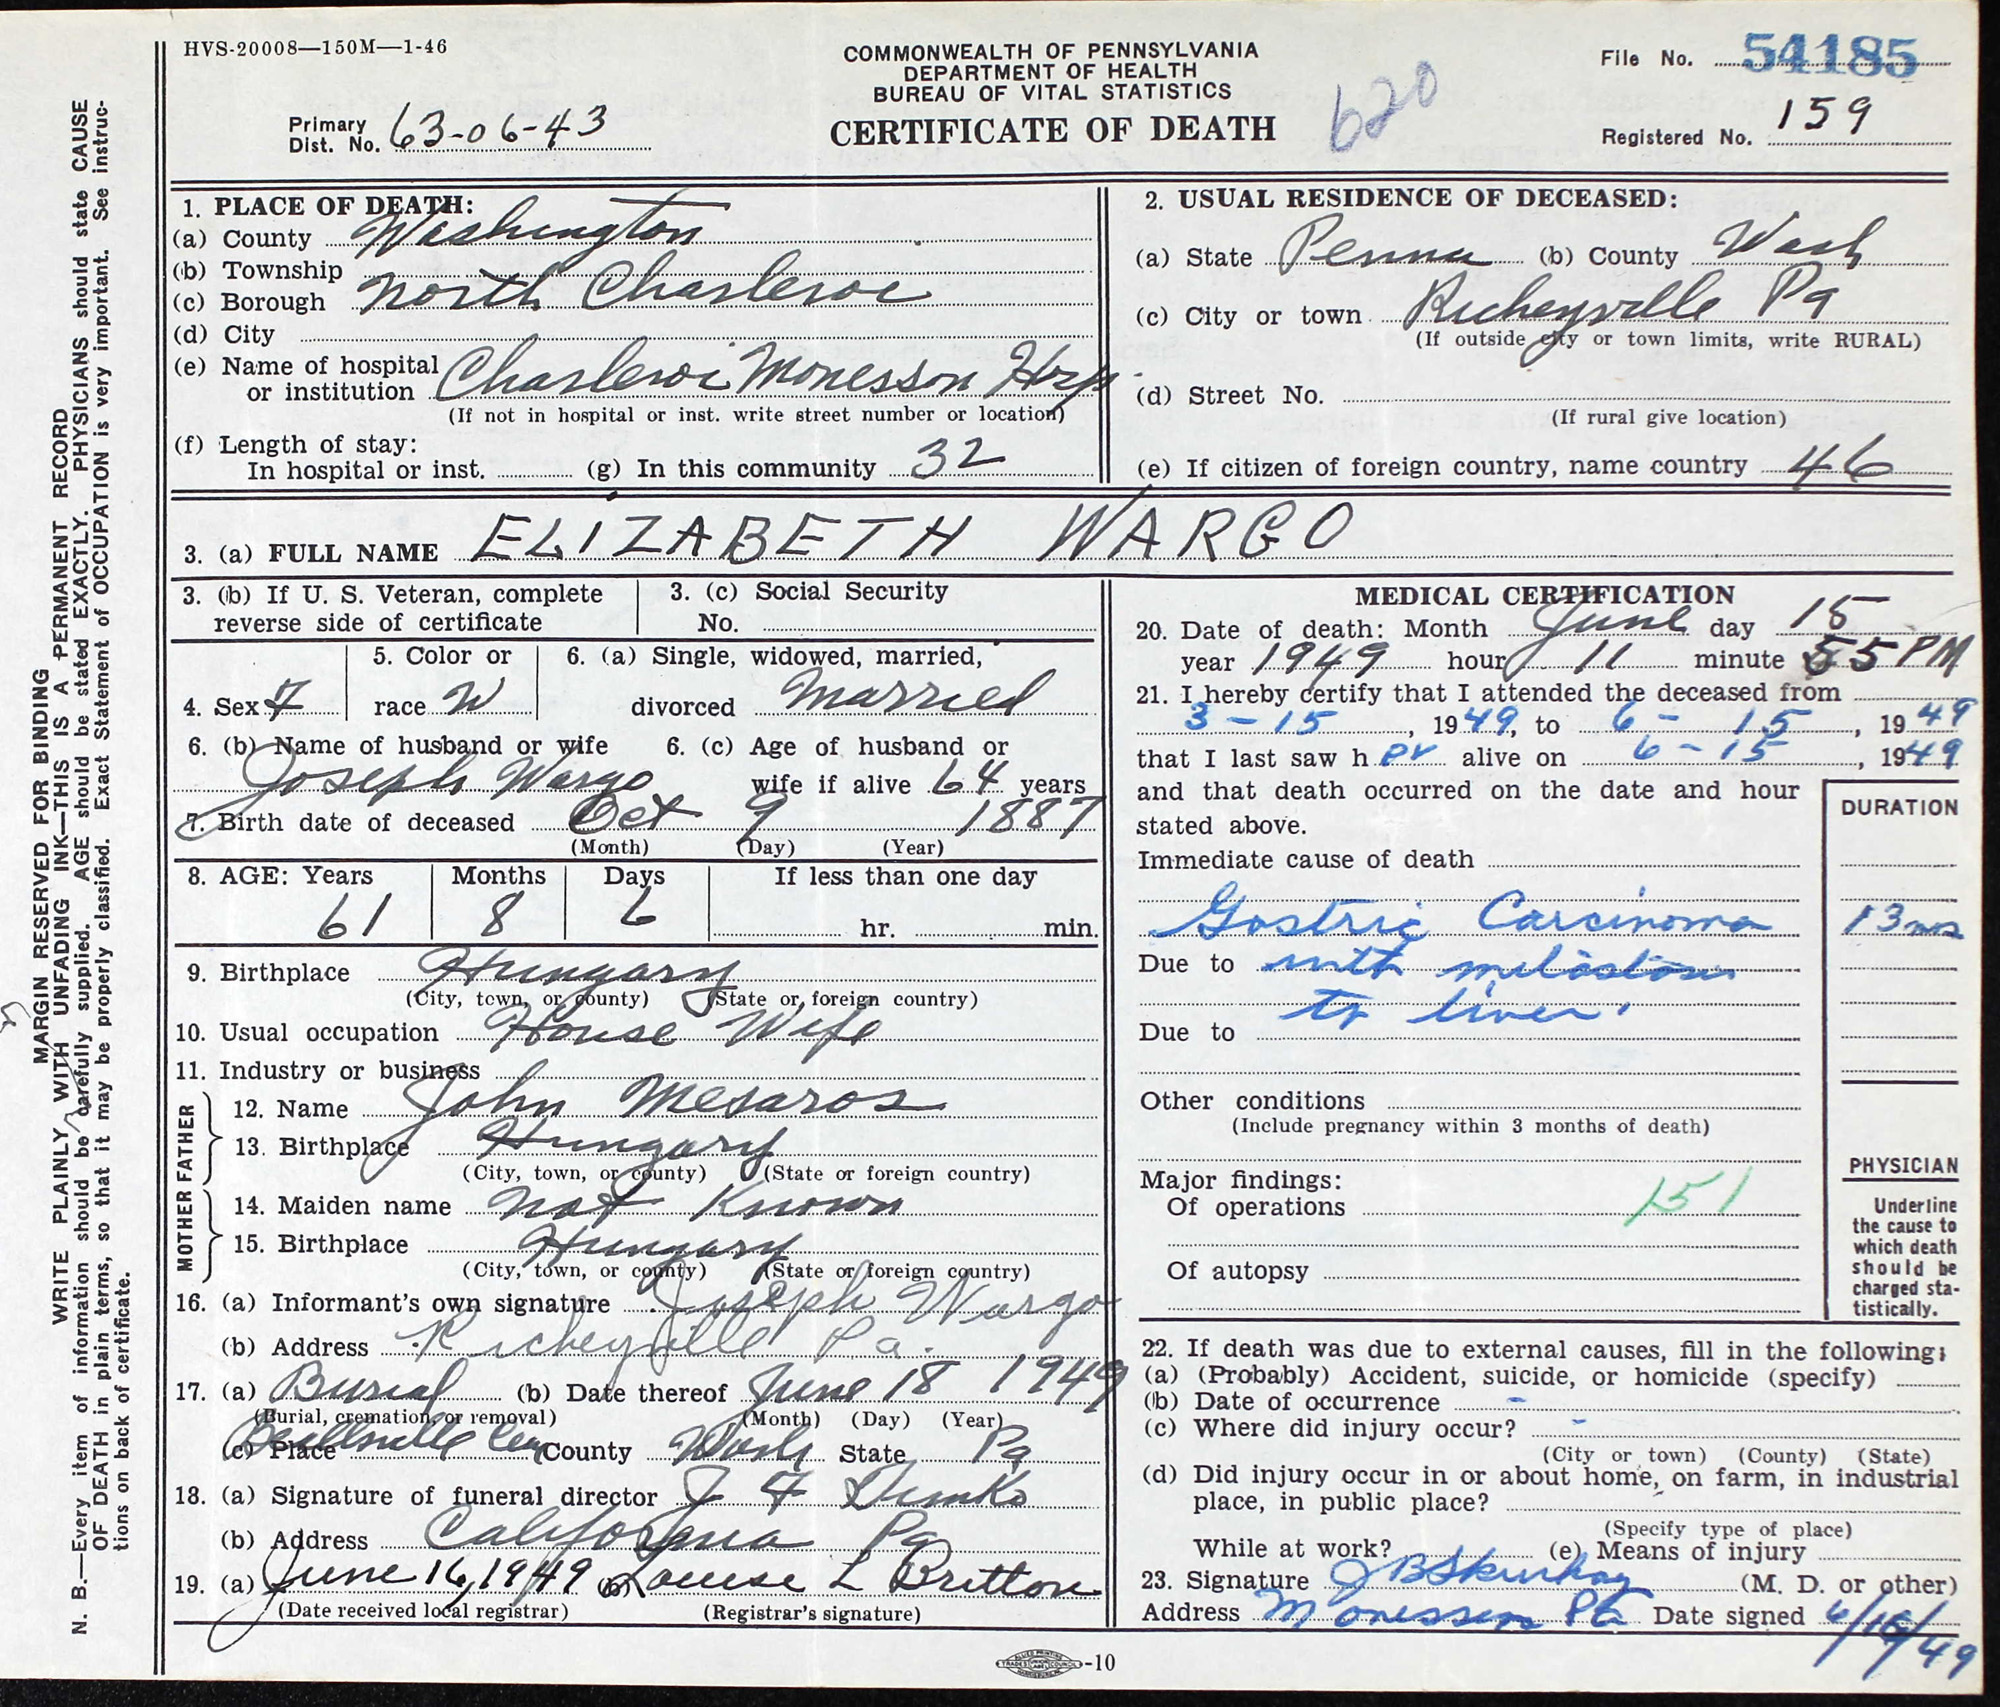 HVS-20008—150M—1-46
COMMONWEALTH OF PENNSYLVANIA
DEPARTMENT OF HEALTH
BUREAU OF VITAL STATISTICS
CERTIFICATE OF DEATH
620
File No. 54185
Registered No. 159
Primary
Dist. No. 63-06-43
MARGIN RESERVED FOR BINDING
WRITE PLAINLY WITH UNFADING INK—THIS IS A PERMANENT RECORD
N. B.—Every item of information should be carefully supplied. AGE should be stated EXACTLY. PHYSICIANS should state CAUSE
OF DEATH in plain terms, so that it may be properly classified. Exact Statement of OCCUPATION is very important. See instruc-
tions on back of certificate.
1. PLACE OF DEATH:
(a) County Washington
(b) Township
(c) Borough North Charleroi
(d) City
(e) Name of hospital
or institution Charleroi Monesson Hosp
(If not in hospital or inst. write street number or location)
(f) Length of stay:
In hospital or inst. (g) In this community 32
2. USUAL RESIDENCE OF DECEASED:
(a) State Penna (b) County Wash
(c) City or town Richeyville Pa
(If outside city or town limits, write RURAL)
(d) Street No.
(If rural give location)
(e) If citizen of foreign country, name country 46
3. (a) FULL NAME ELIZABETH WARGO
3. (b) If U. S. Veteran, complete
reverse side of certificate
3. (c) Social Security
No.
4. Sex F
5. Color or
race W
6. (a) Single, widowed, married,
divorced Married
6. (b) Name of husband or wife
Joseph Wargo
6. (c) Age of husband or
wife if alive 64 years
7. Birth date of deceased Oct 9 1887
(Month) (Day) (Year)
8. AGE: Years Months Days If less than one day
61 8 6 hr. min.
9. Birthplace Hungary
(City, town, or county) (State or foreign country)
10. Usual occupation House Wife
11. Industry or business
FATHER
12. Name John Mesaros
13. Birthplace Hungary
(City, town, or county) (State or foreign country)
MOTHER
14. Maiden name not Known
15. Birthplace Hungary
(City, town, or county) (State or foreign country)
16. (a) Informant's own signature Joseph Wargo
(b) Address Richeyville Pa.
17. (a) Burial (b) Date thereof June 18 1949
(Burial, cremation, or removal) (Month) (Day) (Year)
(c) Place Beallsville Cem County Wash State Pa
18. (a) Signature of funeral director J F Demko
(b) Address California Pa
19. (a) June 16, 1949 (b) Louise L Britton
(Date received local registrar) (Registrar's signature)
MEDICAL CERTIFICATION
20. Date of death: Month June day 15
year 1949 hour 11 minute 55 PM
21. I hereby certify that I attended the deceased from
3-15, 1949, to 6-15, 1949
that I last saw h er alive on 6-15, 1949
and that death occurred on the date and hour
stated above.
DURATION
Immediate cause of death
Gastric Carcinoma 13 mos
Due to with metastasis
to liver.
Due to
Other conditions
(Include pregnancy within 3 months of death)
Major findings:
Of operations 151
Of autopsy
PHYSICIAN
Underline
the cause to
which death
should be
charged sta-
tistically.
22. If death was due to external causes, fill in the following:
(a) (Probably) Accident, suicide, or homicide (specify)
(b) Date of occurrence -
(c) Where did injury occur? -
(City or town) (County) (State)
(d) Did injury occur in or about home, on farm, in industrial
place, in public place?
(Specify type of place)
While at work? (e) Means of injury
23. Signature J B (M. D. or other)
Address Monessen Pa Date signed 6/16/49
-10